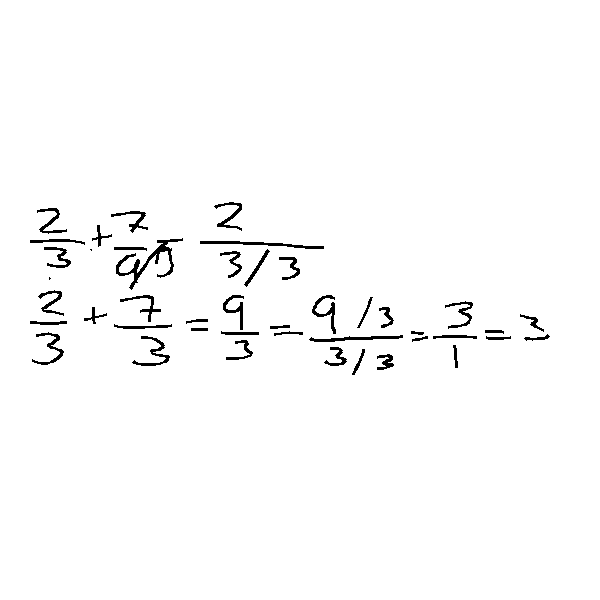 2/3 + 7/9/3 = 2/(3/3)
2/3 + 7/3 = 9/3 = (9/3)/(3/3) = 3/1 = 3